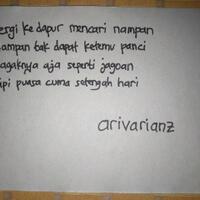 ergi ke dapur mencari nampan
ampan tak dapat ketemu panci
agaknya aja seperti jagoan
pi puasa cuma setengah hari
arivarianz